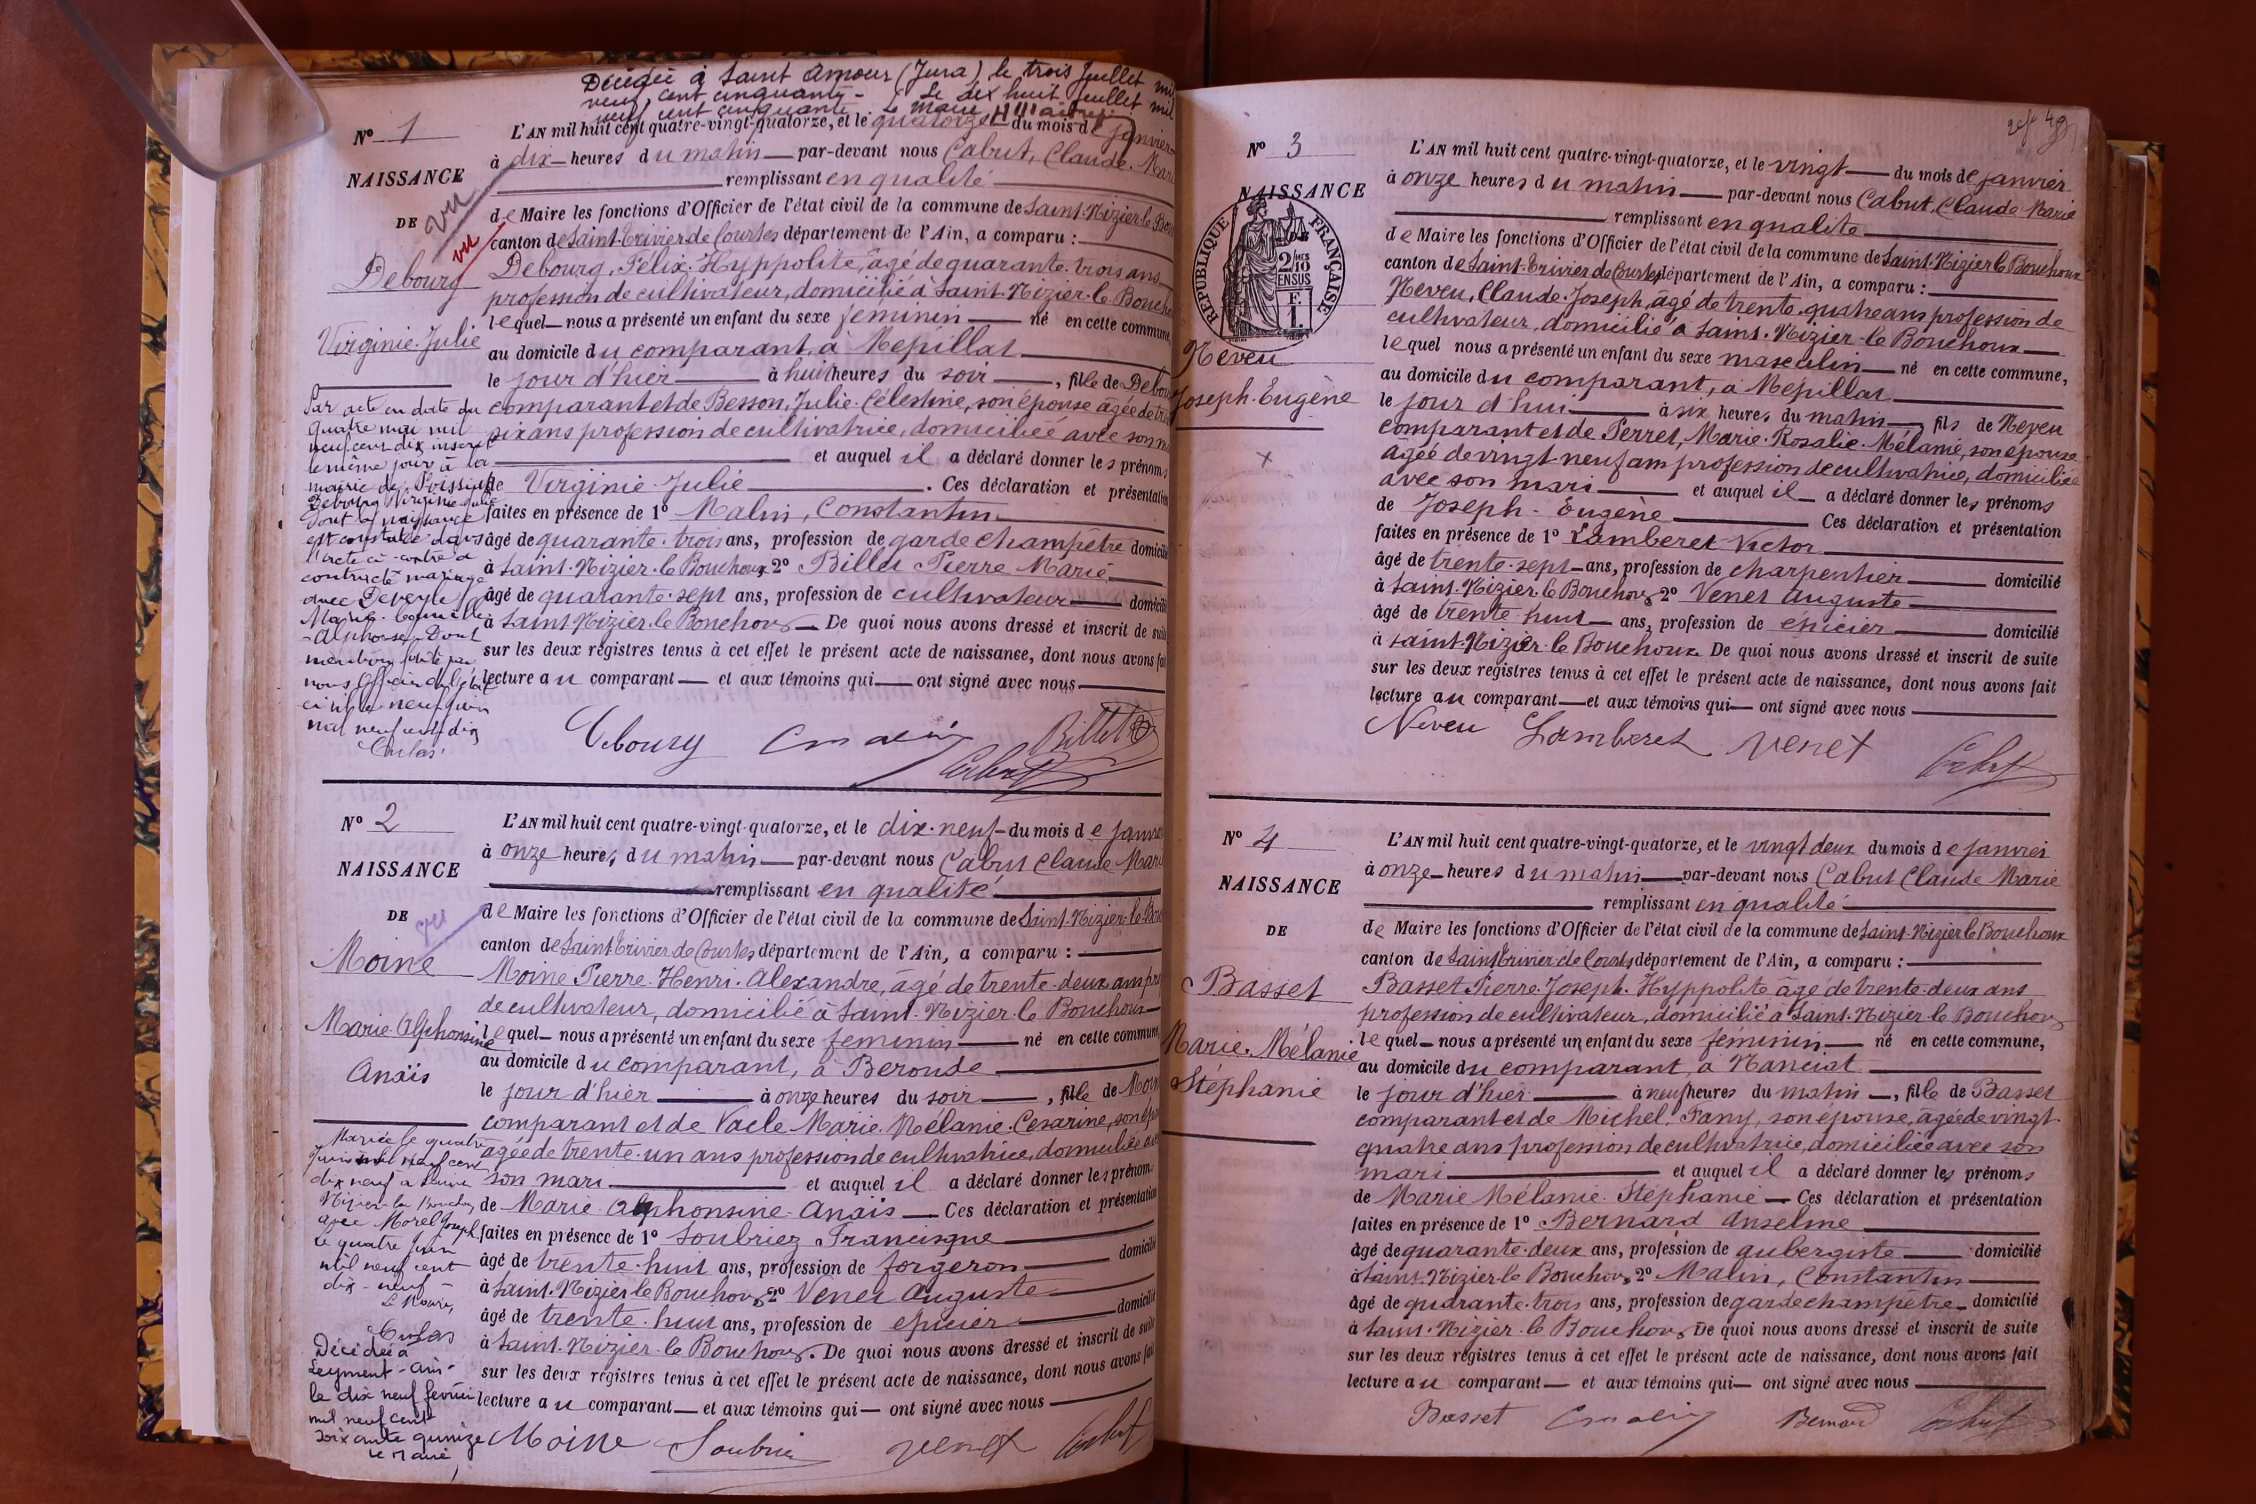 Décédée à Saint Amour (Jura) le trois Juillet mil
neuf cent cinquante - Le dix huit Juillet mil
neuf cent cinquante. Le Maire
N° 1
NAISSANCE
DE
vu
vu
Debourg
Virginie Julie
Par acte en date du
quatre mai mil
neuf cent dix inscrit
le même jour à la
mairie de
Debourg Virginie Julie
dont la naissance
est constatée dans
l'acte ci-contre a
contracté mariage
avec
Marie
Alphonse. Dont
mention faite par
nous Officier de l'état
civil le neuf juin
mil neuf cent dix
L'AN mil huit cent quatre-vingt-quatorze, et le quatorze du mois de janvier
à dix heures du matin par-devant nous Cabut, Claude. Marie
remplissant en qualité
de Maire les fonctions d'Officier de l'état civil de la commune de Saint-Nizier-le-Bou
canton de Saint-Trivier de Courtes département de l'Ain, a comparu :
Debourg, Félix. Hyppolite, âgé de quarante. trois ans
profession de cultivateur, domicilié à Saint-Nizier-le Bouche
lequel nous a présenté un enfant du sexe féminin né en cette commune,
au domicile du comparant, à Mépillat
le jour d'hier à huit heures du soir, fille de Debou
comparant et de Besson, Julie. Célestine, son épouse âgée de
six ans profession de cultivatrice, domiciliée avec son m
et auquel il a déclaré donner les prénoms
de Virginie Julie. Ces déclaration et présentation
faites en présence de 1° Malin, Constantin
âgé de quarante. trois ans, profession de garde champêtre domicilié
à Saint-Nizier-le Bouchoux 2° Billet Pierre Marie
âgé de quarante. sept ans, profession de cultivateur domicilié
à Saint Nizier. le Bouchoux. De quoi nous avons dressé et inscrit de suite
sur les deux registres tenus à cet effet le présent acte de naissance, dont nous avons fait
lecture au comparant et aux témoins qui ont signé avec nous
Debourg C Malin Billet
Cabut
N° 2
NAISSANCE
DE
vu
Moine
Marie Alphonsine
Anaïs
Mariée le quatre
Juin mil neuf cent
dix neuf à Saint
Nizier-le Bouchoux
avec Morel Joseph
Le quatre Juin
mil neuf cent
dix-neuf -
Le Maire,
Décédée à
Leyment - Ain -
le dix neuf février
mil neuf cent
soixante quinze
Le Maire,
L'AN mil huit cent quatre-vingt-quatorze, et le dix-neuf du mois de janvier
à onze heures du matin par-devant nous Cabut Claude Marie
remplissant en qualité
de Maire les fonctions d'Officier de l'état civil de la commune de Saint-Nizier-le-Bou
canton de Saint Trivier de Courtes département de l'Ain, a comparu :
Moine Pierre. Henri. Alexandre, âgé de trente. deux ans pro
de cultivateur, domicilié à Saint. Nizier. le Bouchoux
lequel nous a présenté un enfant du sexe féminin né en cette commune,
au domicile du comparant, à Beroude
le jour d'hier à onze heures du soir, fille de Moine
comparant et de Vacle Marie. Mélanie. Cesarine, son épou
âgée de trente. un ans profession de cultivatrice, domiciliée avec
son mari et auquel il a déclaré donner les prénoms
de Marie Alphonsine Anaïs Ces déclaration et présentation
faites en présence de 1° Soubriez Francisque
âgé de trente. huit ans, profession de forgeron domicilié
à Saint. Nizier le Bouchoux 2° Venet Auguste
âgé de trente. huit ans, profession de épicier domicilié
à Saint. Nizier. le Bouchoux. De quoi nous avons dressé et inscrit de suite
sur les deux registres tenus à cet effet le présent acte de naissance, dont nous avons fait
lecture au comparant et aux témoins qui ont signé avec nous
Moine Soubriez Venet Cabut
N° 3
NAISSANCE
DE
RÉPUBLIQUE FRANÇAISE
2/10
EN SUS
Neveu
Joseph. Eugène
L'AN mil huit cent quatre-vingt-quatorze, et le vingt du mois de janvier
à onze heures du matin par-devant nous Cabut, Claude Marie
remplissant en qualité
de Maire les fonctions d'Officier de l'état civil de la commune de Saint-Nizier le Bouchoux
canton de Saint-Trivier de Courtes département de l'Ain, a comparu :
Neveu, Claude. Joseph, âgé de trente. quatre ans profession de
cultivateur, domicilié à Saint. Nizier-le Bouchoux
lequel nous a présenté un enfant du sexe masculin né en cette commune,
au domicile du comparant, à Mépillat
le jour d'hui à six heures du matin, fils de Neveu
comparant et de Perret, Marie. Rosalie. Mélanie, son épouse
âgée de vingt neuf ans profession de cultivatrice, domiciliée
avec son mari et auquel il a déclaré donner les prénoms
de Joseph - Eugène Ces déclaration et présentation
faites en présence de 1° Lamberet Victor
âgé de trente. sept ans, profession de charpentier domicilié
à Saint. Nizier. le Bouchoux 2° Venet Auguste
âgé de trente. huit ans, profession de épicier domicilié
à Saint. Nizier. le Bouchoux De quoi nous avons dressé et inscrit de suite
sur les deux registres tenus à cet effet le présent acte de naissance, dont nous avons fait
lecture au comparant et aux témoins qui ont signé avec nous
Neveu Lamberet Venet Cabut
N° 4
NAISSANCE
DE
Basset
Marie. Mélanie
Stéphanie
L'AN mil huit cent quatre-vingt-quatorze, et le vingt deux du mois de janvier
à onze heures du matin par-devant nous Cabut Claude Marie
remplissant en qualité
de Maire les fonctions d'Officier de l'état civil de la commune de Saint-Nizier le Bouchoux
canton de Saint Trivier de Courtes département de l'Ain, a comparu :
Basset Pierre. Joseph. Hyppolite âgé de trente. deux ans
profession de cultivateur, domicilié à Saint. Nizier-le Bouchoux
lequel nous a présenté un enfant du sexe féminin né en cette commune,
au domicile du comparant, à Manciat
le jour d'hier à neuf heures du matin, fille de Basset
comparant et de Michel, Fany, son épouse, âgée de vingt.
quatre ans profession de cultivatrice, domiciliée avec son
mari et auquel il a déclaré donner les prénoms
de Marie Mélanie. Stéphanie Ces déclaration et présentation
faites en présence de 1° Bernard Anselme
âgé de quarante. deux ans, profession de aubergiste domicilié
à Saint. Nizier le Bouchoux 2° Malin, Constantin
âgé de quarante. trois ans, profession de garde champêtre domicilié
à Saint. Nizier. le Bouchoux De quoi nous avons dressé et inscrit de suite
sur les deux registres tenus à cet effet le présent acte de naissance, dont nous avons fait
lecture au comparant et aux témoins qui ont signé avec nous
Basset C Malin Bernard Cabut